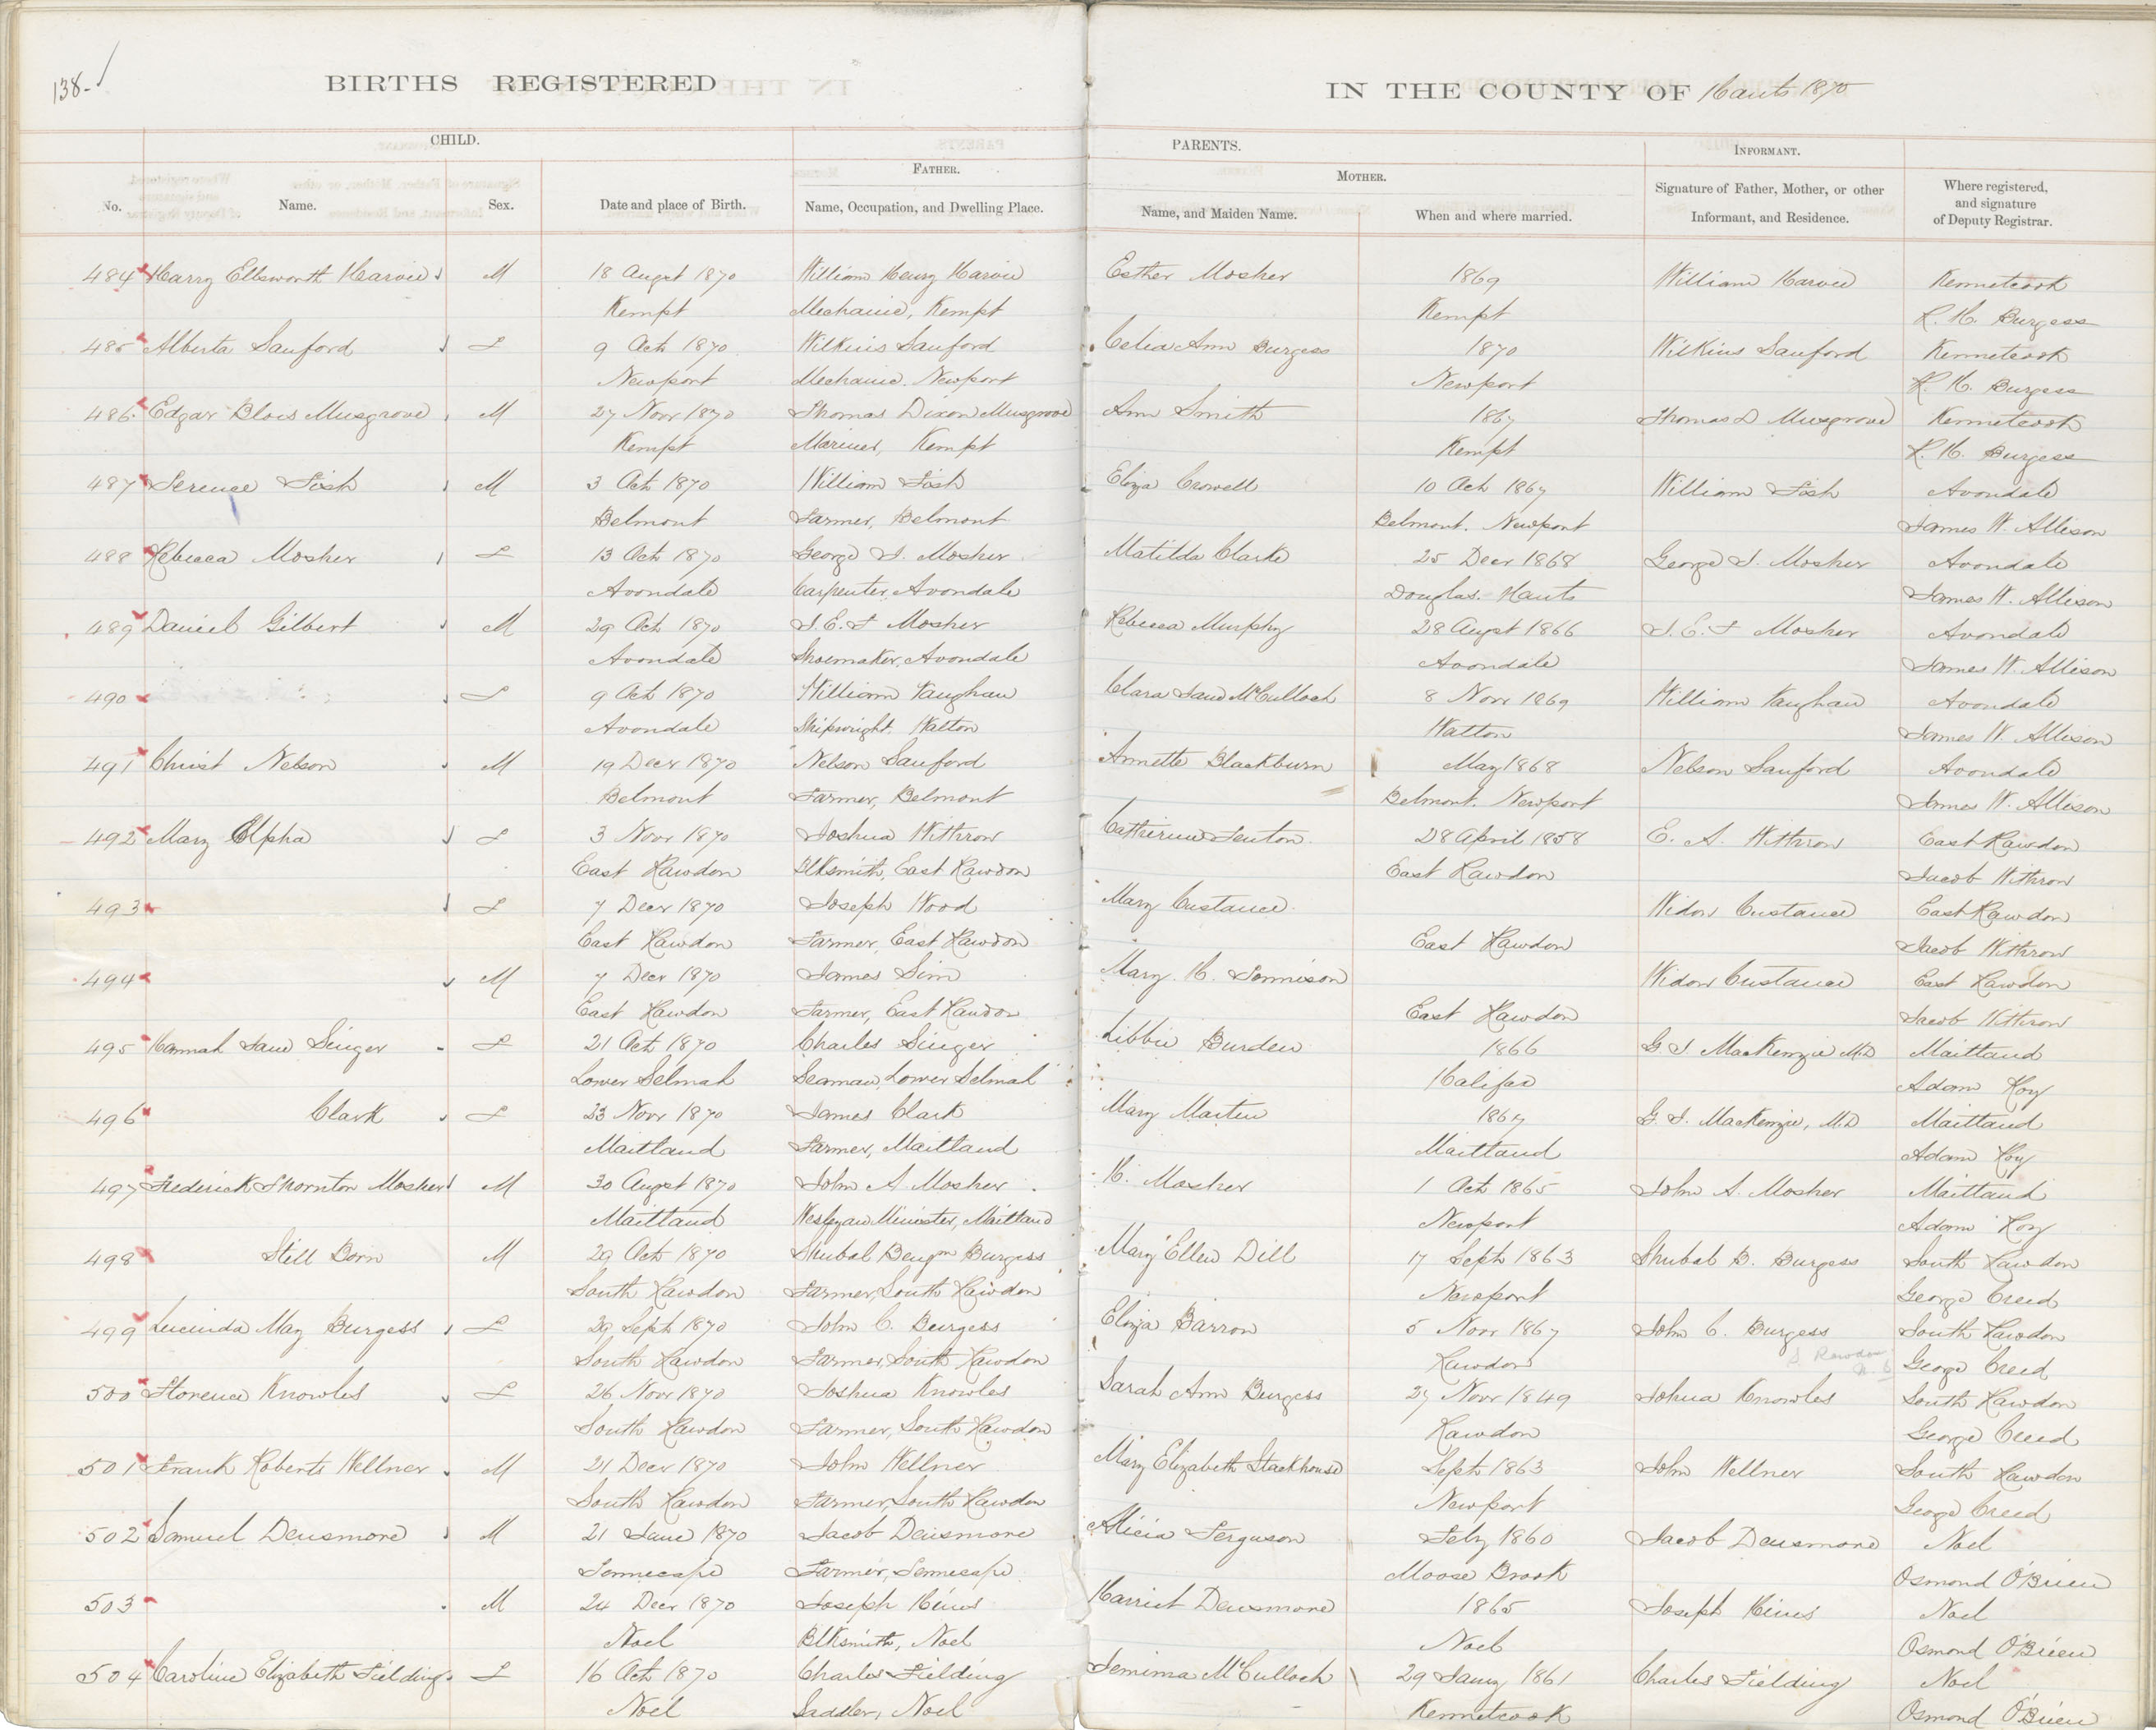 138-
BIRTHS REGISTERED IN THE COUNTY OF Hants 1870
CHILD. PARENTS.
FATHER. MOTHER. INFORMANT.
No. Name. Sex. Date and place of Birth. Name, Occupation, and Dwelling Place. Name, and Maiden Name. When and where married. Signature of Father, Mother, or other Informant, and Residence. Where registered, and signature of Deputy Registrar.
484 Harry Ellsworth Harvie M 18 Augst 1870 William Henry Harvie Esther Mosher 1869 William Harvie Kennetcook
Kempt Mechanic, Kempt Kempt R. H. Burgess
485 Alberta Sanford F 9 Oct 1870 Wilkins Sanford Celia Ann Burgess 1870 Wilkins Sanford Kennetcook
Newport Mechanic. Newport Newport R. H. Burgess
486 Edgar Blois Musgrove M 27 Novr 1870 Thomas Dixon Musgrove Ann Smith 1867 Thomas D Musgrove Kennetcook
Kempt Mariner, Kempt Kempt R. H. Burgess
487 Terence Fish M 3 Oct 1870 William Fish Eliza Crowell 10 Oct 1867 William Fish Avondale
Belmont Farmer, Belmont Belmont. Newport James W. Allison
488 Rebecca Mosher F 13 Oct 1870 George T. Mosher Matilda Clarke 25 Decr 1868 George T. Mosher Avondale
Avondale Carpenter, Avondale Douglas. Hants James W. Allison
489 Daniel Gilbert M 29 Oct 1870 J. E. F Mosher Rebecca Murphy 28 Augst 1866 J. E. F Mosher Avondale
Avondale Shoemaker, Avondale Avondale James W. Allison
490 F 9 Oct 1870 William Vaughan Clara Jane McCulloch 8 Novr 1869 William Vaughan Avondale
Avondale Shipwright. Walton Walton James W. Allison
491 Christ Nelson M 19 Decr 1870 Nelson Sanford Annette Blackburn May 1868 Nelson Sanford Avondale
Belmont Farmer, Belmont Belmont. Newport James W. Allison
492 Mary Elpha F 3 Novr 1870 Joshua Withrow Catherine Fenton 28 April 1858 E. A. Withrow East Rawdon
East Rawdon Blksmith, East Rawdon East Rawdon Jacob Withrow
493 F 7 Decr 1870 Joseph Wood Mary Custance Widow Custance East Rawdon
East Rawdon Farmer, East Rawdon East Rawdon Jacob Withrow
494 M 7 Decr 1870 James Sim Mary H. Jennison Widow Custance East Rawdon
East Rawdon Farmer, East Rawdon East Rawdon Jacob Withrow
495 Hannah Jane Singer F 21 Oct 1870 Charles Singer Libbie Burden 1866 G J MacKenzie MD Maitland
Lower Selmah Seaman, Lower Selmah Halifax Adam Roy
496 Clark F 23 Novr 1870 James Clark Mary Martin 1867 G. J. MacKenzie, MD Maitland
Maitland Farmer, Maitland Maitland Adam Roy
497 Frederick Thornton Mosher M 30 Augst 1870 John A. Mosher H. Mosher 1 Oct 1865 John A. Mosher Maitland
Maitland Wesleyan Minister, Maitland Newport Adam Roy
498 Still Born M 29 Oct 1870 Shubal Benjm Burgess Mary Ellen Dill 17 Sept 1863 Shubal B. Burgess South Rawdon
South Rawdon Farmer, South Rawdon Newport George Creed
499 Lucinda May Burgess F 29 Sept 1870 John C. Burgess Eliza Barron 5 Novr 1867 John C. Burgess South Rawdon
South Rawdon Farmer, South Rawdon Rawdon S. Rawdon George Creed
500 Florence Knowles F 26 Novr 1870 Joshua Knowles Sarah Ann Burgess 27 Novr 1849 Johua Knowles South Rawdon
South Rawdon Farmer, South Rawdon Rawdon George Creed
501 Frank Roberts Wellner M 21 Decr 1870 John Wellner Mary Elizabeth Stackhouse Sept 1863 John Wellner South Rawdon
South Rawdon Farmer, South Rawdon Newport George Creed
502 Samuel Densmore M 21 June 1870 Jacob Densmore Alicia Ferguson Feby 1860 Jacob Densmore Noel
Tennecape Farmer, Tennecape Moose Brook Osmond O'Brien
503 M 24 Decr 1870 Joseph Hines Harriet Densmore 1865 Joseph Hines Noel
Noel Blksmith, Noel Noel Osmond O'Brien
504 Caroline Elizabeth Fielding F 16 Oct 1870 Charles Fielding Jemima McCulloch 29 Jany 1861 Charles Fielding Noel
Noel Saddler, Noel Kennetcook Osmond O'Brien